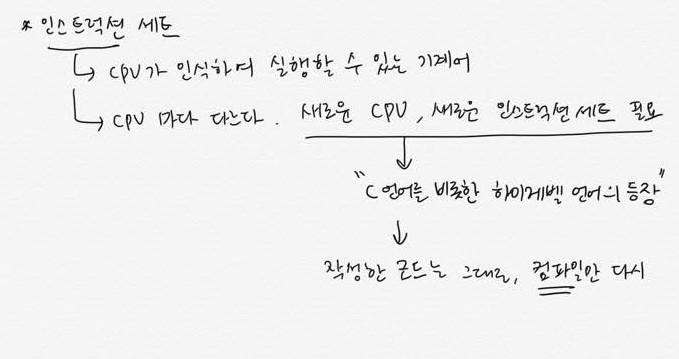 * 인스트럭션 세트
↳ CPU가 인식하여 실행할 수 있는 기계어
↳ CPU 마다 다르다. 새로운 CPU, 새로운 인스트럭션세트 필요
↓
"C언어를 비롯한 하이레벨 언어의 등장"
↓
작성한 코드는 그대로, 컴파일만 다시